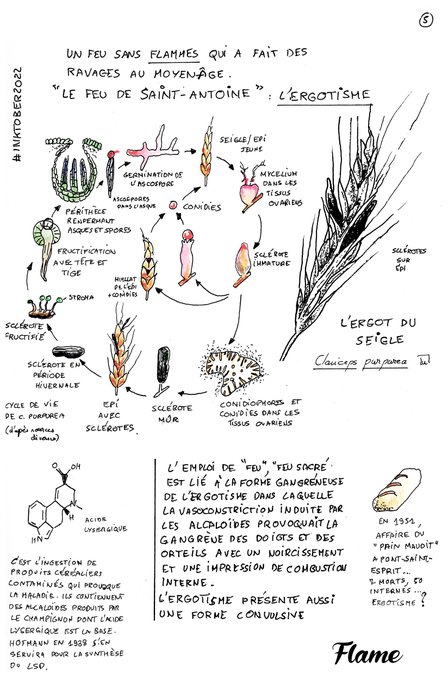 5
#INKTOBER2022
UN FEU SANS FLAMMES QUI A FAIT DES
RAVAGES AU MOYEN-ÂGE.
"LE FEU DE SAINT-ANTOINE" : L'ERGOTISME
SEIGLE/EPI
JEUNE
GERMINATION DE
L'ASCOSPORE
ASCOSPORES
DANS L'ASQUE
MYCELIUM
DANS LES
TISSUS
OVARIENS
CONIDIES
PÉRITHÈCE
RENFERMANT
ASQUES ET SPORES
FRUCTIFICATION
AVEC TÊTE ET
TIGE
MIELLAT
DE L'EPI
+ CONIDIES
SCLÉROTE
IMMATURE
SCLÉROTES
SUR
EPI
STROMA
SCLÉROTE
FRUCTIFIÉ
L'ERGOT DU
SEIGLE
Claviceps purpurea
SCLÉROTE EN
PÉRIODE
HIVERNALE
CYCLE DE VIE
DE C. PURPUREA
(d'après sources
diverses)
EPI
AVEC
SCLÉROTES
SCLÉROTE
MÛR
CONIDIOPHORES ET
CONIDIES DANS LES
TISSUS OVARIENS
O
OH
N
HN
ACIDE
LYSERGIQUE
C'EST L'INGESTION DE
PRODUITS CÉRÉALIERS
CONTAMINÉS QUI PROVOQUE
LA MALADIE. ILS CONTIENNENT
DES ALCALOÏDES PRODUITS PAR
LE CHAMPIGNON DONT L'ACIDE
LYSERGIQUE EST LA BASE.
HOFMANN EN 1938 S'EN
SERVIRA POUR LA SYNTHÈSE
DU LSD.
L'EMPLOI DE "FEU", "FEU SACRÉ"
EST LIÉ À LA FORME GANGRENEUSE
DE L'ERGOTISME DANS LAQUELLE
LA VASOCONSTRICTION INDUITE PAR
LES ALCALOÏDES PROVOQUAIT LA
GANGRÈNE DES DOIGTS ET DES
ORTEILS AVEC UN NOIRCISSEMENT
ET UNE IMPRESSION DE COMBUSTION
INTERNE.
L'ERGOTISME PRÉSENTE AUSSI
UNE FORME CONVULSIVE
EN 1951,
AFFAIRE DU
"PAIN MAUDIT"
A PONT-SAINT-
ESPRIT...
7 MORTS, 50
INTERNES...
ERGOTISME ?
Flame